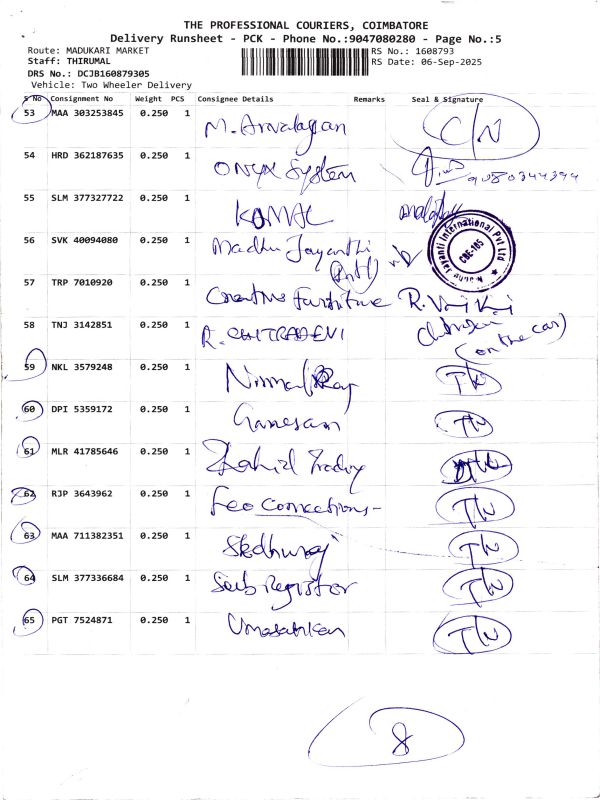 THE PROFESSIONAL COURIERS, COIMBATORE
Delivery Runsheet - PCK - Phone No.:9047080280 - Page No.:5
Route: MADUKARI MARKET RS No.: 1608793
Staff: THIRUMAL RS Date: 06-Sep-2025
DRS No.: DCJB160879305
Vehicle: Two Wheeler Delivery
S No Consignment No Weight PCS Consignee Details Remarks Seal & Signature
53 MAA 303253845 0.250 1 M. Arivalagan C/N
54 HRD 362187635 0.250 1 ONYX System 9080344394
55 SLM 377327722 0.250 1 KOMAL
56 SVK 40094080 0.250 1 Madhu Jayanthi
Jayanti International Pvt Ltd
CBE-105
57 TRP 7010920 0.250 1 Creative Furniture R.
58 TNJ 3142851 0.250 1 R. CHITRADEVI
(on the car)
59 NKL 3579248 0.250 1 Nirmal Raj
60 DPI 5359172 0.250 1 Ganesan
61 MLR 41785646 0.250 1 Zahid Trading
62 RJP 3643962 0.250 1 Leo Connections
63 MAA 711382351 0.250 1
64 SLM 377336684 0.250 1 Sub Registor
65 PGT 7524871 0.250 1
8